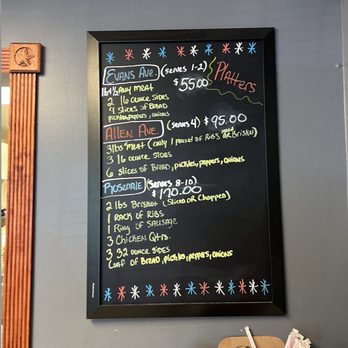 Evans Ave. (serves 1-2)
Platters
$55.00
1lb 1/2 Any Meat
2 16 ounce sides
4 slices of Bread
pickles, peppers, onions
Allen Ave. (serves 4) $95.00
3lbs meat (only 1 pound of Ribs or Brisket)
3 16 ounce sides
6 slices of Bread, pickles, peppers, onions
Rosedale (serves 8-10)
$170.00
2 lbs Brisket (sliced or chopped)
1 rack of ribs
1 Ring of Sausage
3 Chicken Qtrs.
3 32 ounce sides
Loaf of Bread, pickles, peppers, onions